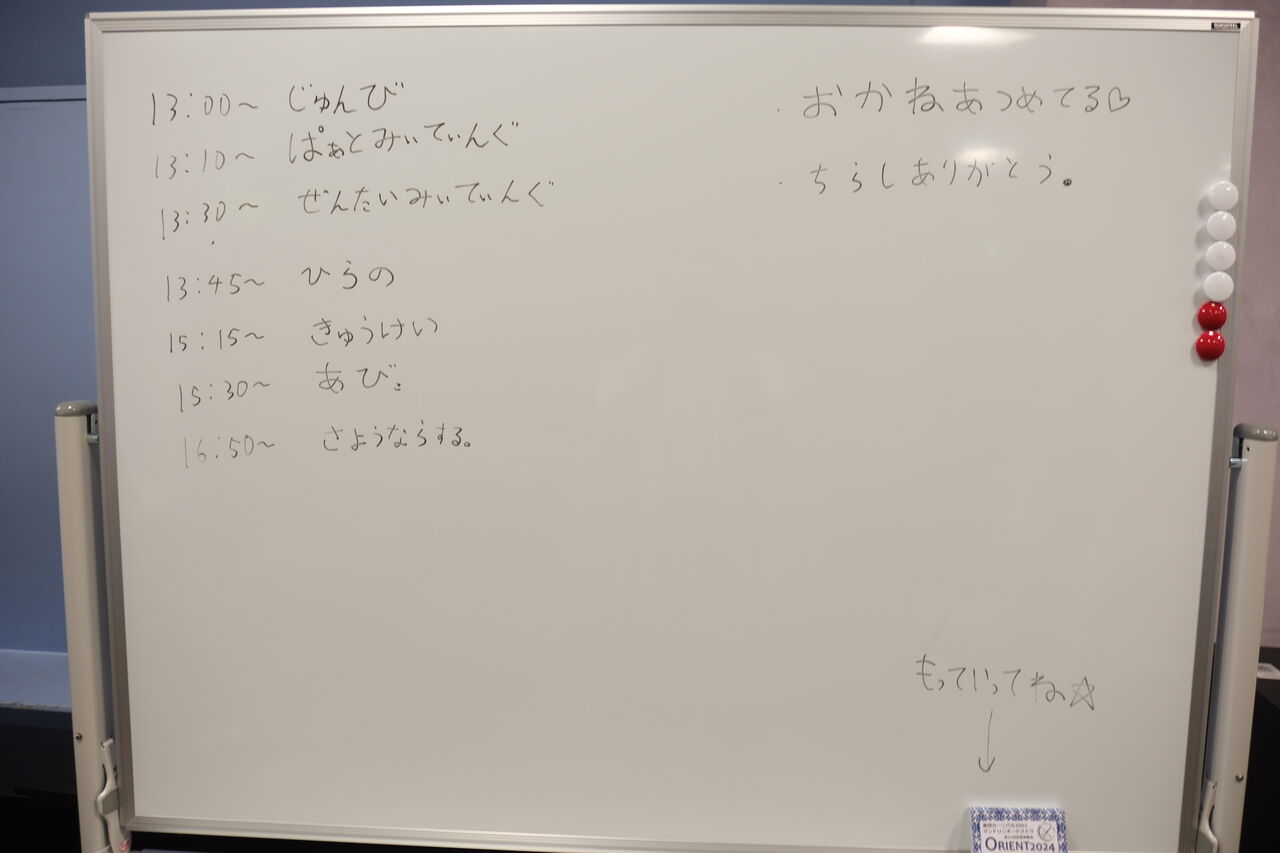 13:00～ じゅんび
13:10～ ぱぁとみぃてぃんぐ
13:30～ ぜんたいみぃてぃんぐ
13:45～ ひらの
15:15～ きゅうけい
15:30～ あび。
16:50～ さようならする。
・おかねあつめてる♡
・ちらしありがとう。
もっていってね☆
↓
ORIENT2024